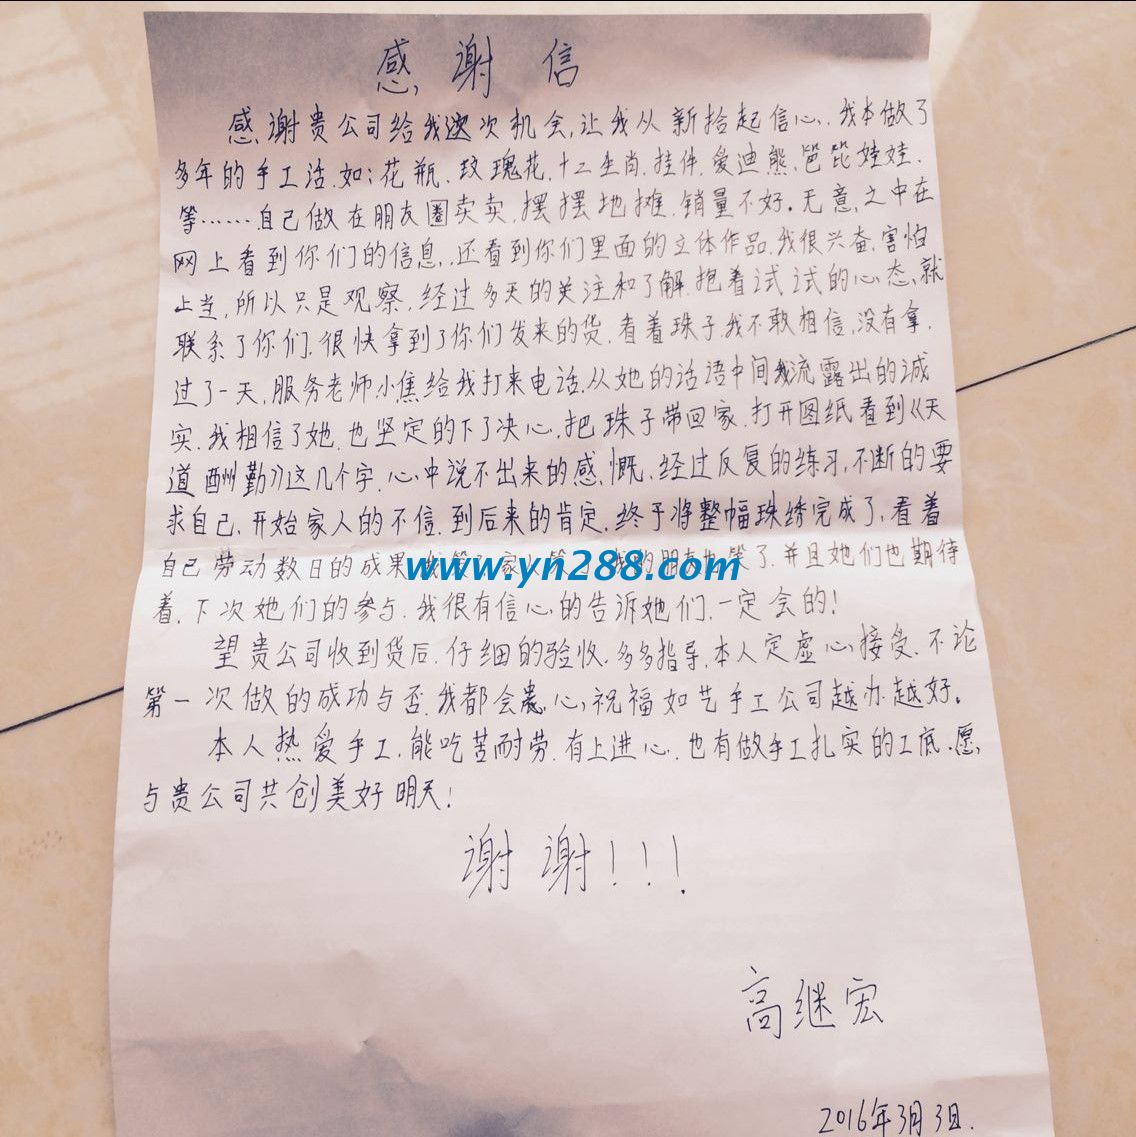 感谢信
感谢贵公司给我这次机会,让我从新拾起信心,我本做了
多年的手工活.如:花瓶.玫瑰花.十二生肖.挂件.爱迪熊.芭芘娃娃.
等……自己做在朋友圈卖卖.摆摆地摊.销量不好。无意之中在
网上看到你们的信息,还看到你们里面的立体作品.我很兴奋.害怕
上当,所以只是观察,经过多天的关注和了解.抱着试试的心态,就
联系了你们.很快拿到了你们发来的货.看着珠子.我不敢相信,没有拿.
过了一天,服务老师小焦给我打来电话.从她的话语中间我流露出的诚
实.我相信了她.也坚定的下了决心,把珠子带回家.打开图纸看到《天
道酬勤》这几个字.心中说不出来的感慨,经过反复的练习,不断的要
求自己,开始家人的不信.到后来的肯定.终于将整幅珠绣完成了,看着
自己劳动数日的成果 我笑了家人笑了 我的朋友也笑了.并且她们也期待
www.yn288.com
着,下次她们的参与.我很有信心的告诉她们.一定会的!
望贵公司收到货后.仔细的验收.多多指导,本人定虚心接受.不论
第一次做的成功与否.我都会衷心祝福如艺手工公司越办越好。
本人热爱手工.能吃苦耐劳.有上进心.也有做手工扎实的工底.愿
与贵公司共创美好明天!
谢谢!!!
高继宏
2016年3月3日.